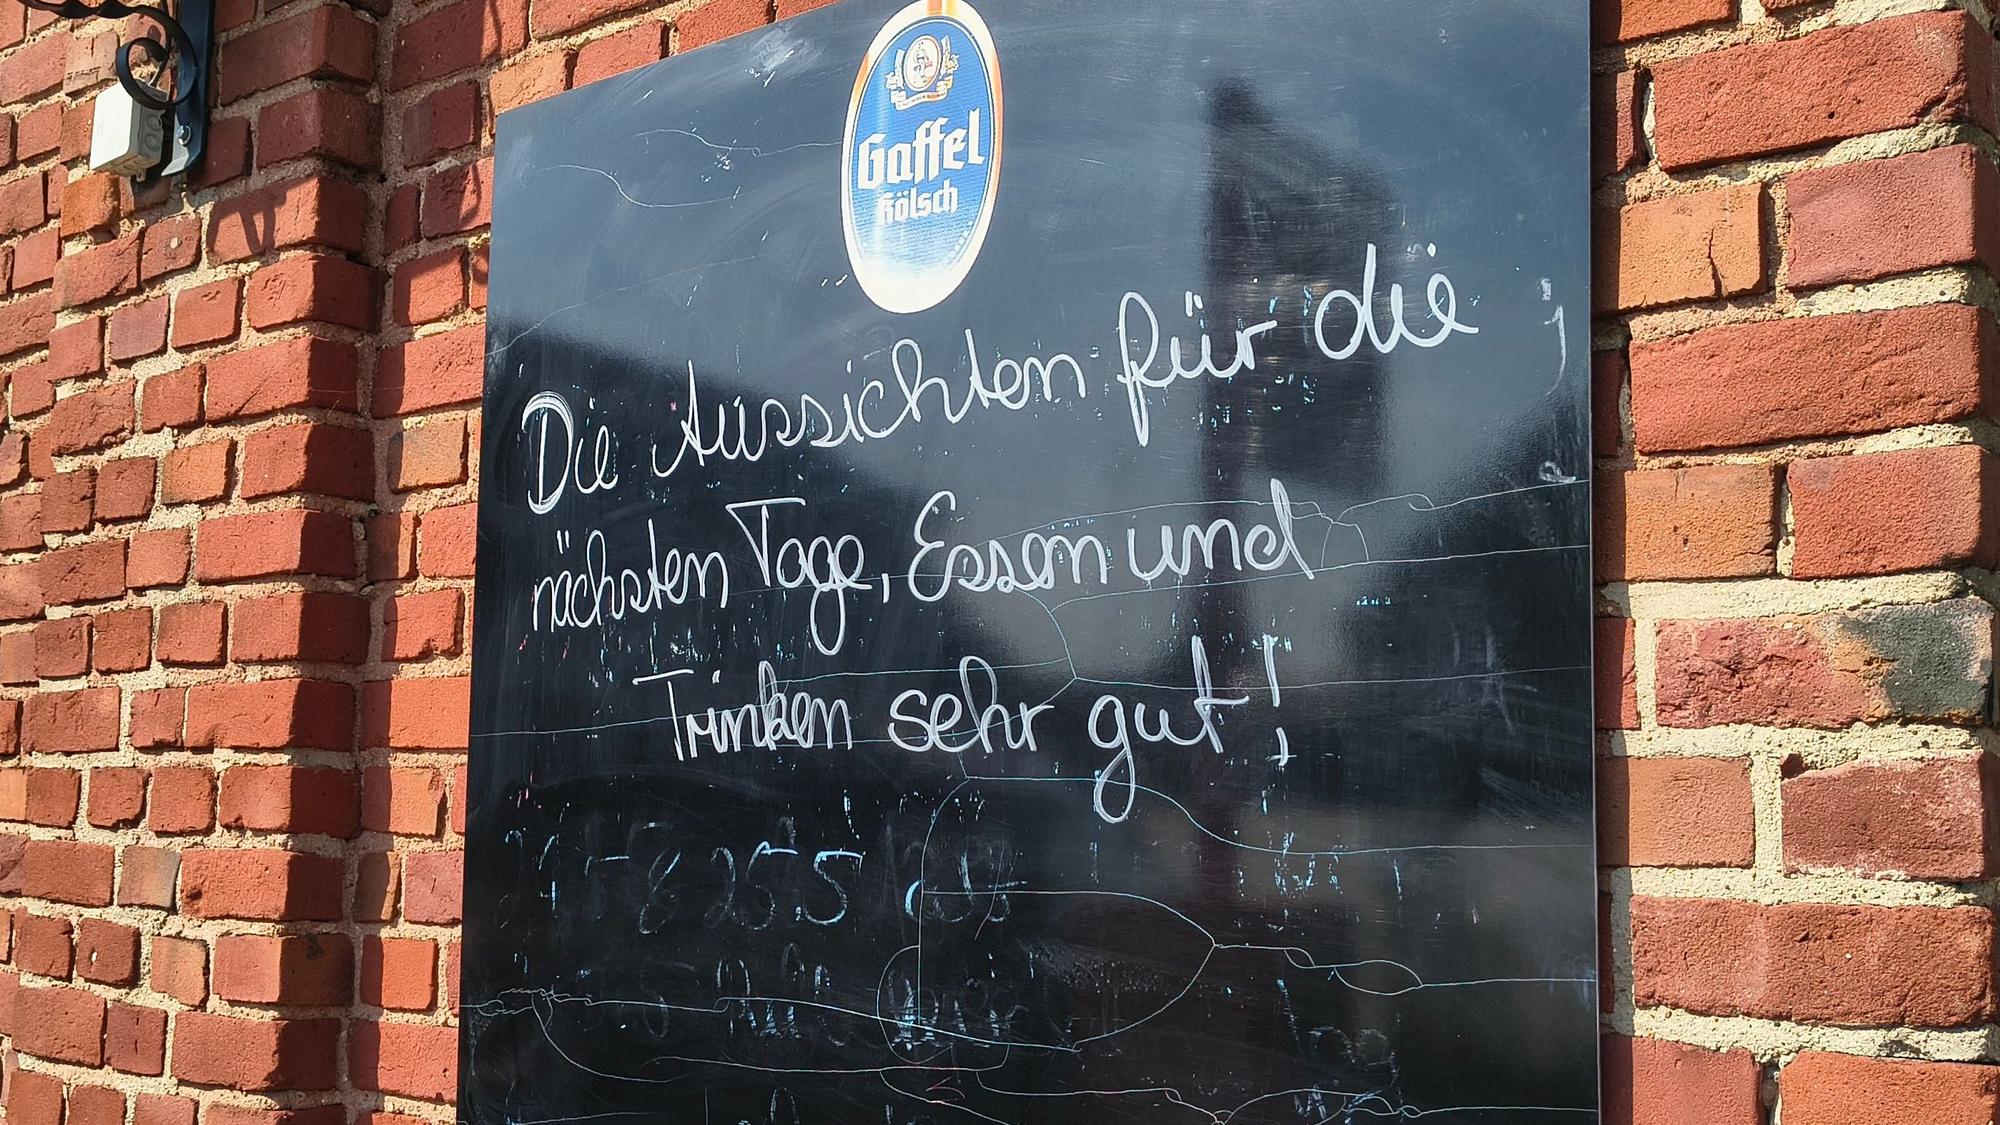 Gaffel
Kölsch
Die Aussichten für die
nächsten Tage, Essen und
Trinken sehr gut!